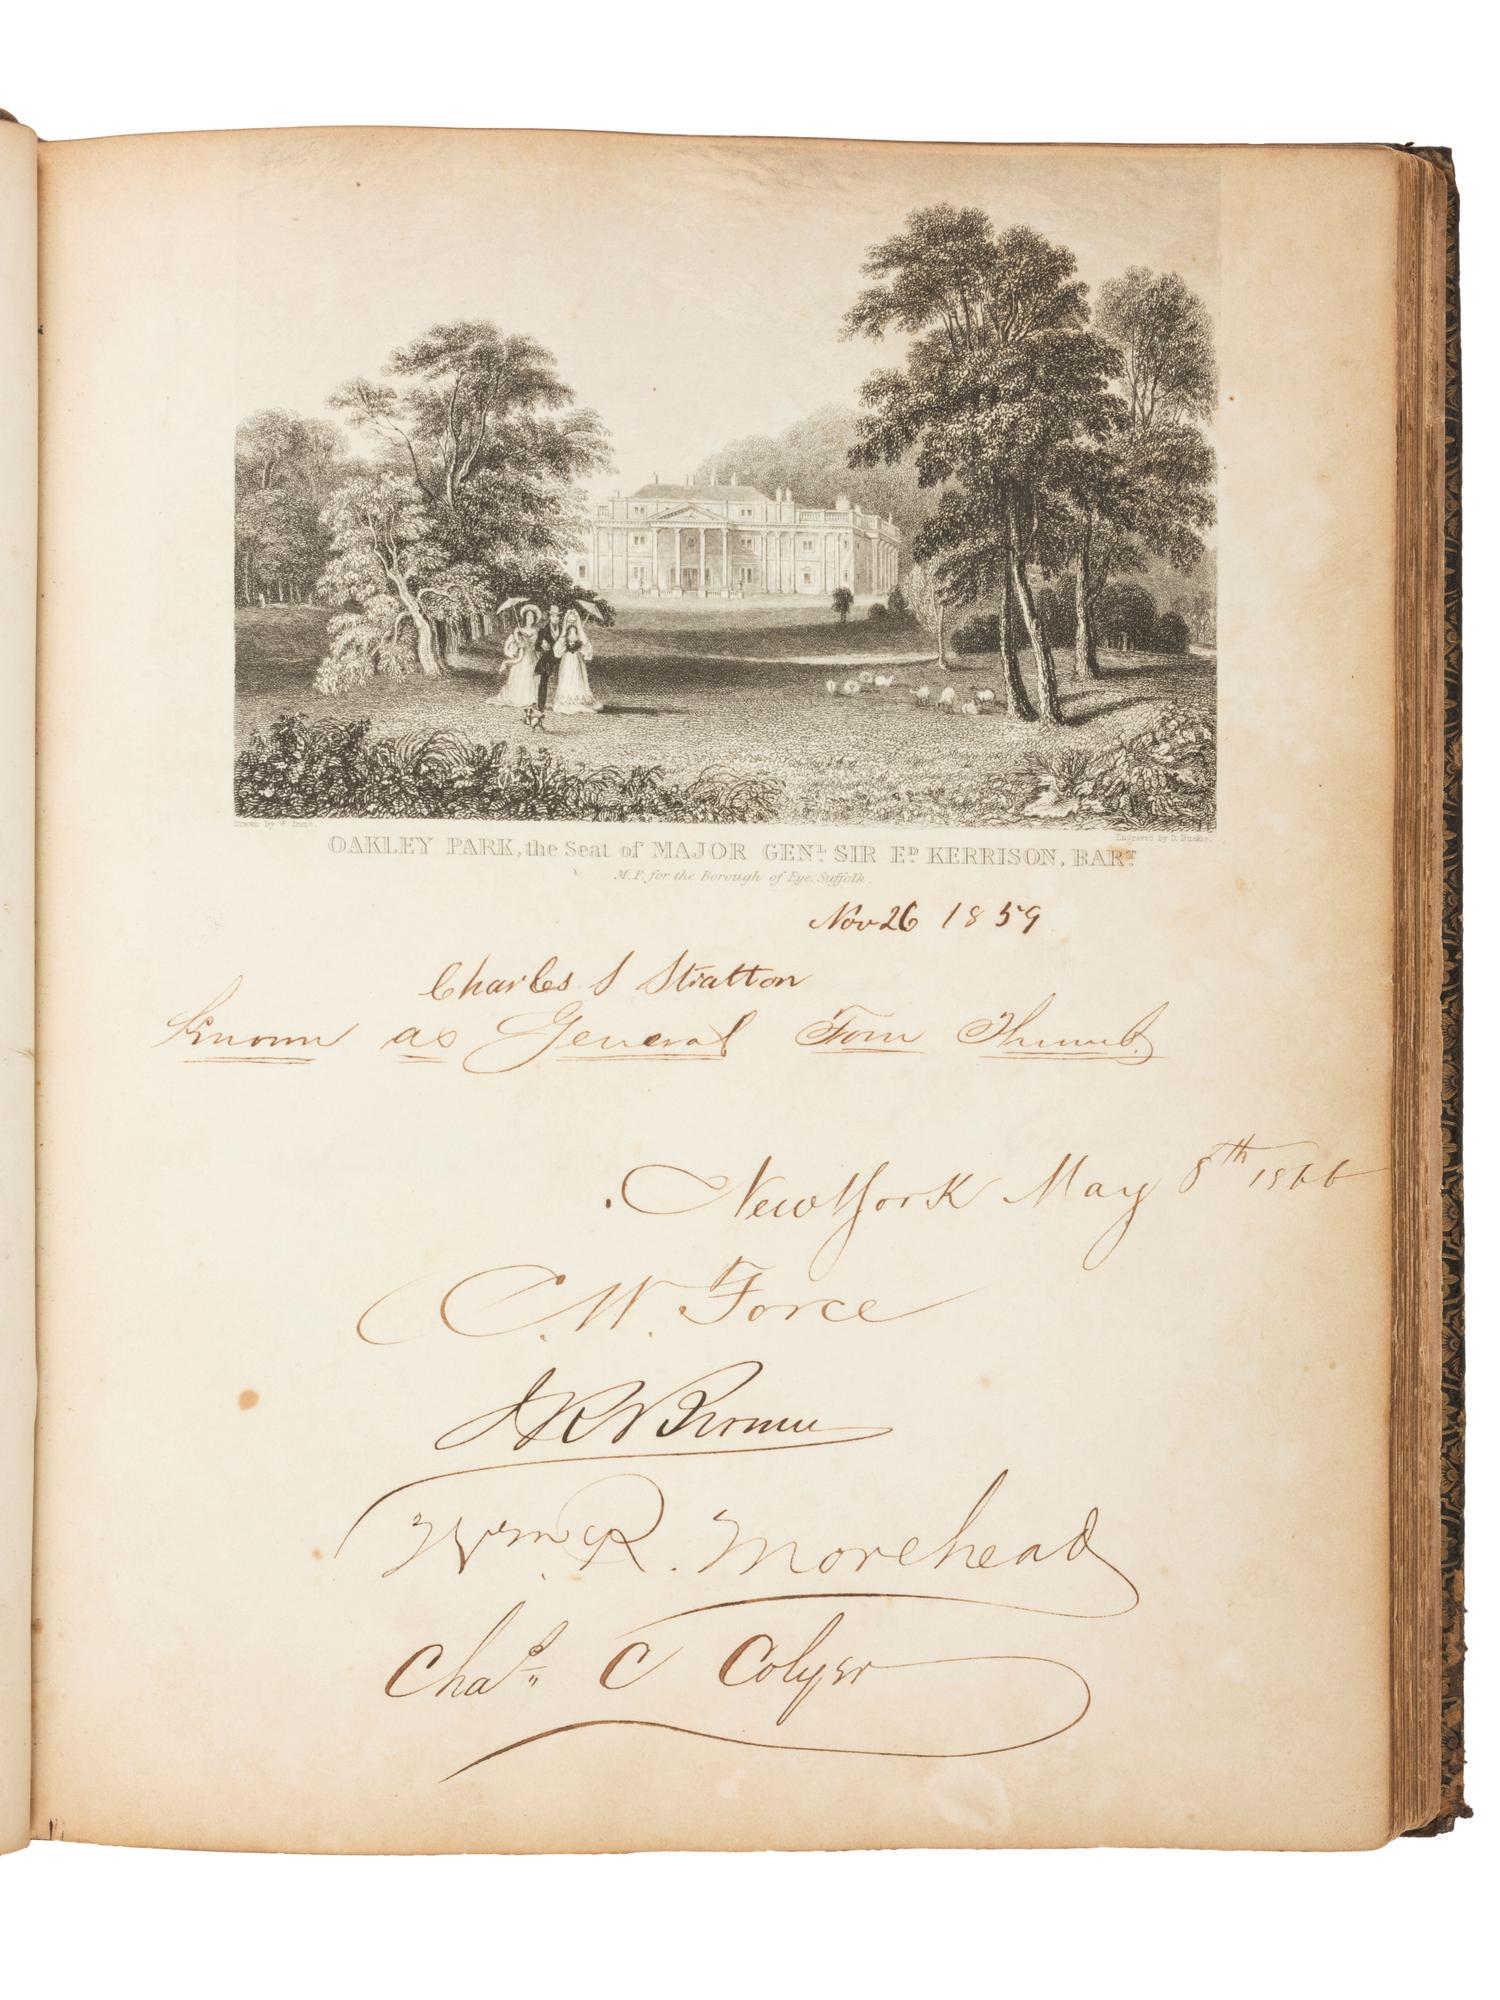 Drawn by W. Brent.
Engraved by D. Buckle.
OAKLEY PARK, the Seat of MAJOR GENL. SIR ED. KERRISON, BART.
M.P. for the Borough of Eye, Suffolk.
Nov 26 1859
Charles S Stratton
Known as General Tom Thumb
New York May 8th 1866
C. W. Force
Wm. R. Morehead
Chas. C Colyer